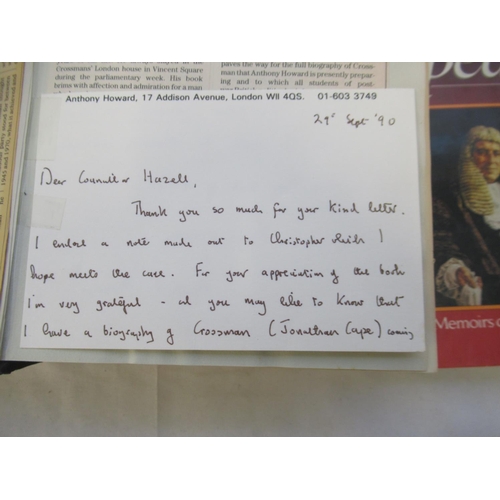 Crossmans' London house in Vincent Square
during the parliamentary week. His book
brims with affection and admiration for a man
paves the way for the full biography of Cross-
man that Anthony Howard is presently prepar-
ing and to which all students of post-
1945 and 1970, what is
Anthony Howard, 17 Addison Avenue, London W11 4QS. 01-603 3749
29th Sept '90
Dear Councillor Hazell,
Thank you so much for your kind letter.
I enclose a note made out to Christopher I
hope meets the case. For your appreciation of the book
I'm very grateful - and you may like to know that
I have a biography of Crossman (Jonathan Cape) coming
Memoirs o